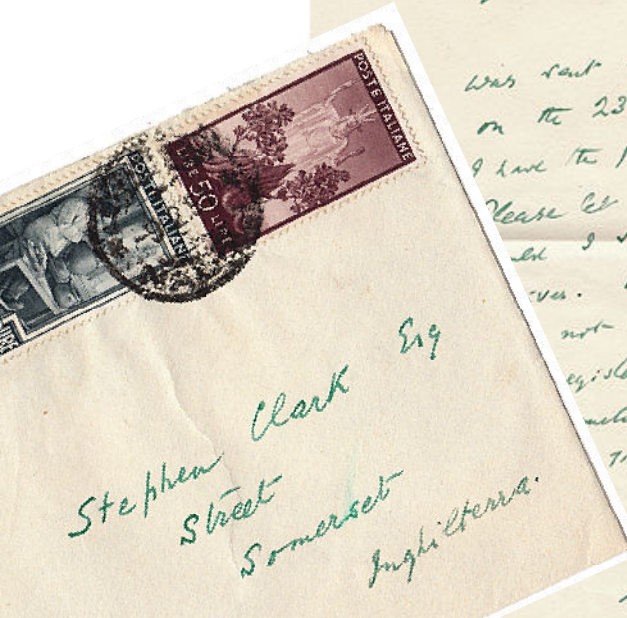 POSTE ITALIANE
LIRE 50 LIRE
POSTE ITALIANE
LIRE
Stephen Clark Esq
Street
Somerset
Inghilterra.
was sent
on the 23
I have the
Please let
I
not